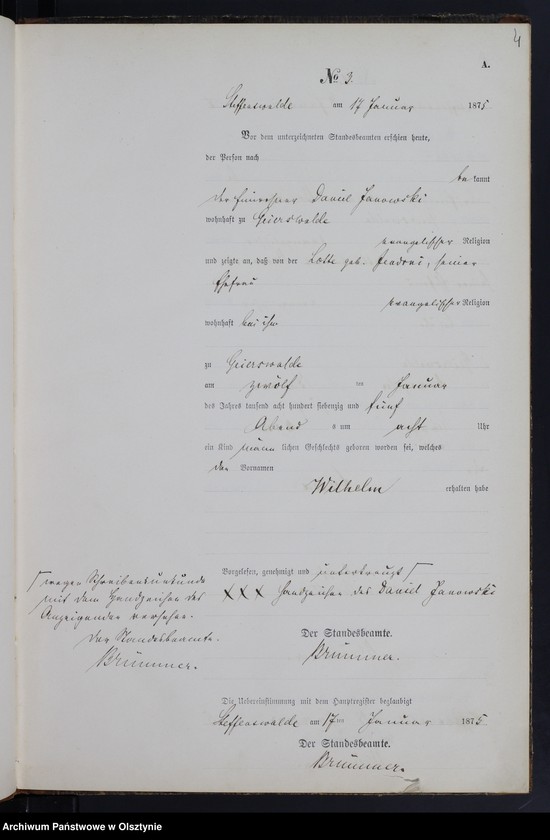 4
A.
No 3.
Steffenswalde am 17 Januar 1875
Vor dem unterzeichneten Standesbeamten erschien heute,
der Person nach
be kannt
der Daniel Janowski
wohnhaft zu Geierswalde
evangelischer Religion
und zeigte an, daß von der Lotte geb. seiner
Ehefrau
evangelischer Religion
wohnhaft bei ihm
zu Geierswalde
am zwölf ten Januar
des Jahres tausend acht hundert siebenzig und fünf
Abend s um acht Uhr
ein Kind männ lichen Geschlechts geboren worden sei, welches
den Vornamen
Wilhelm erhalten habe
Vorgelesen, genehmigt und
XXX Handzeichen des Daniel Janowski
wegen Schreibensunkunde
mit dem Handzeichen des
Anzeigenden versehen.
Der Standesbeamte.
Brümmer.
Der Standesbeamte.
Brümmer.
Die Uebereinstimmung mit dem Hauptregister beglaubigt
Steffenswalde am 17ten Januar 1875
Der Standesbeamte.
Brümmer.
Archiwum Państwowe w Olsztynie